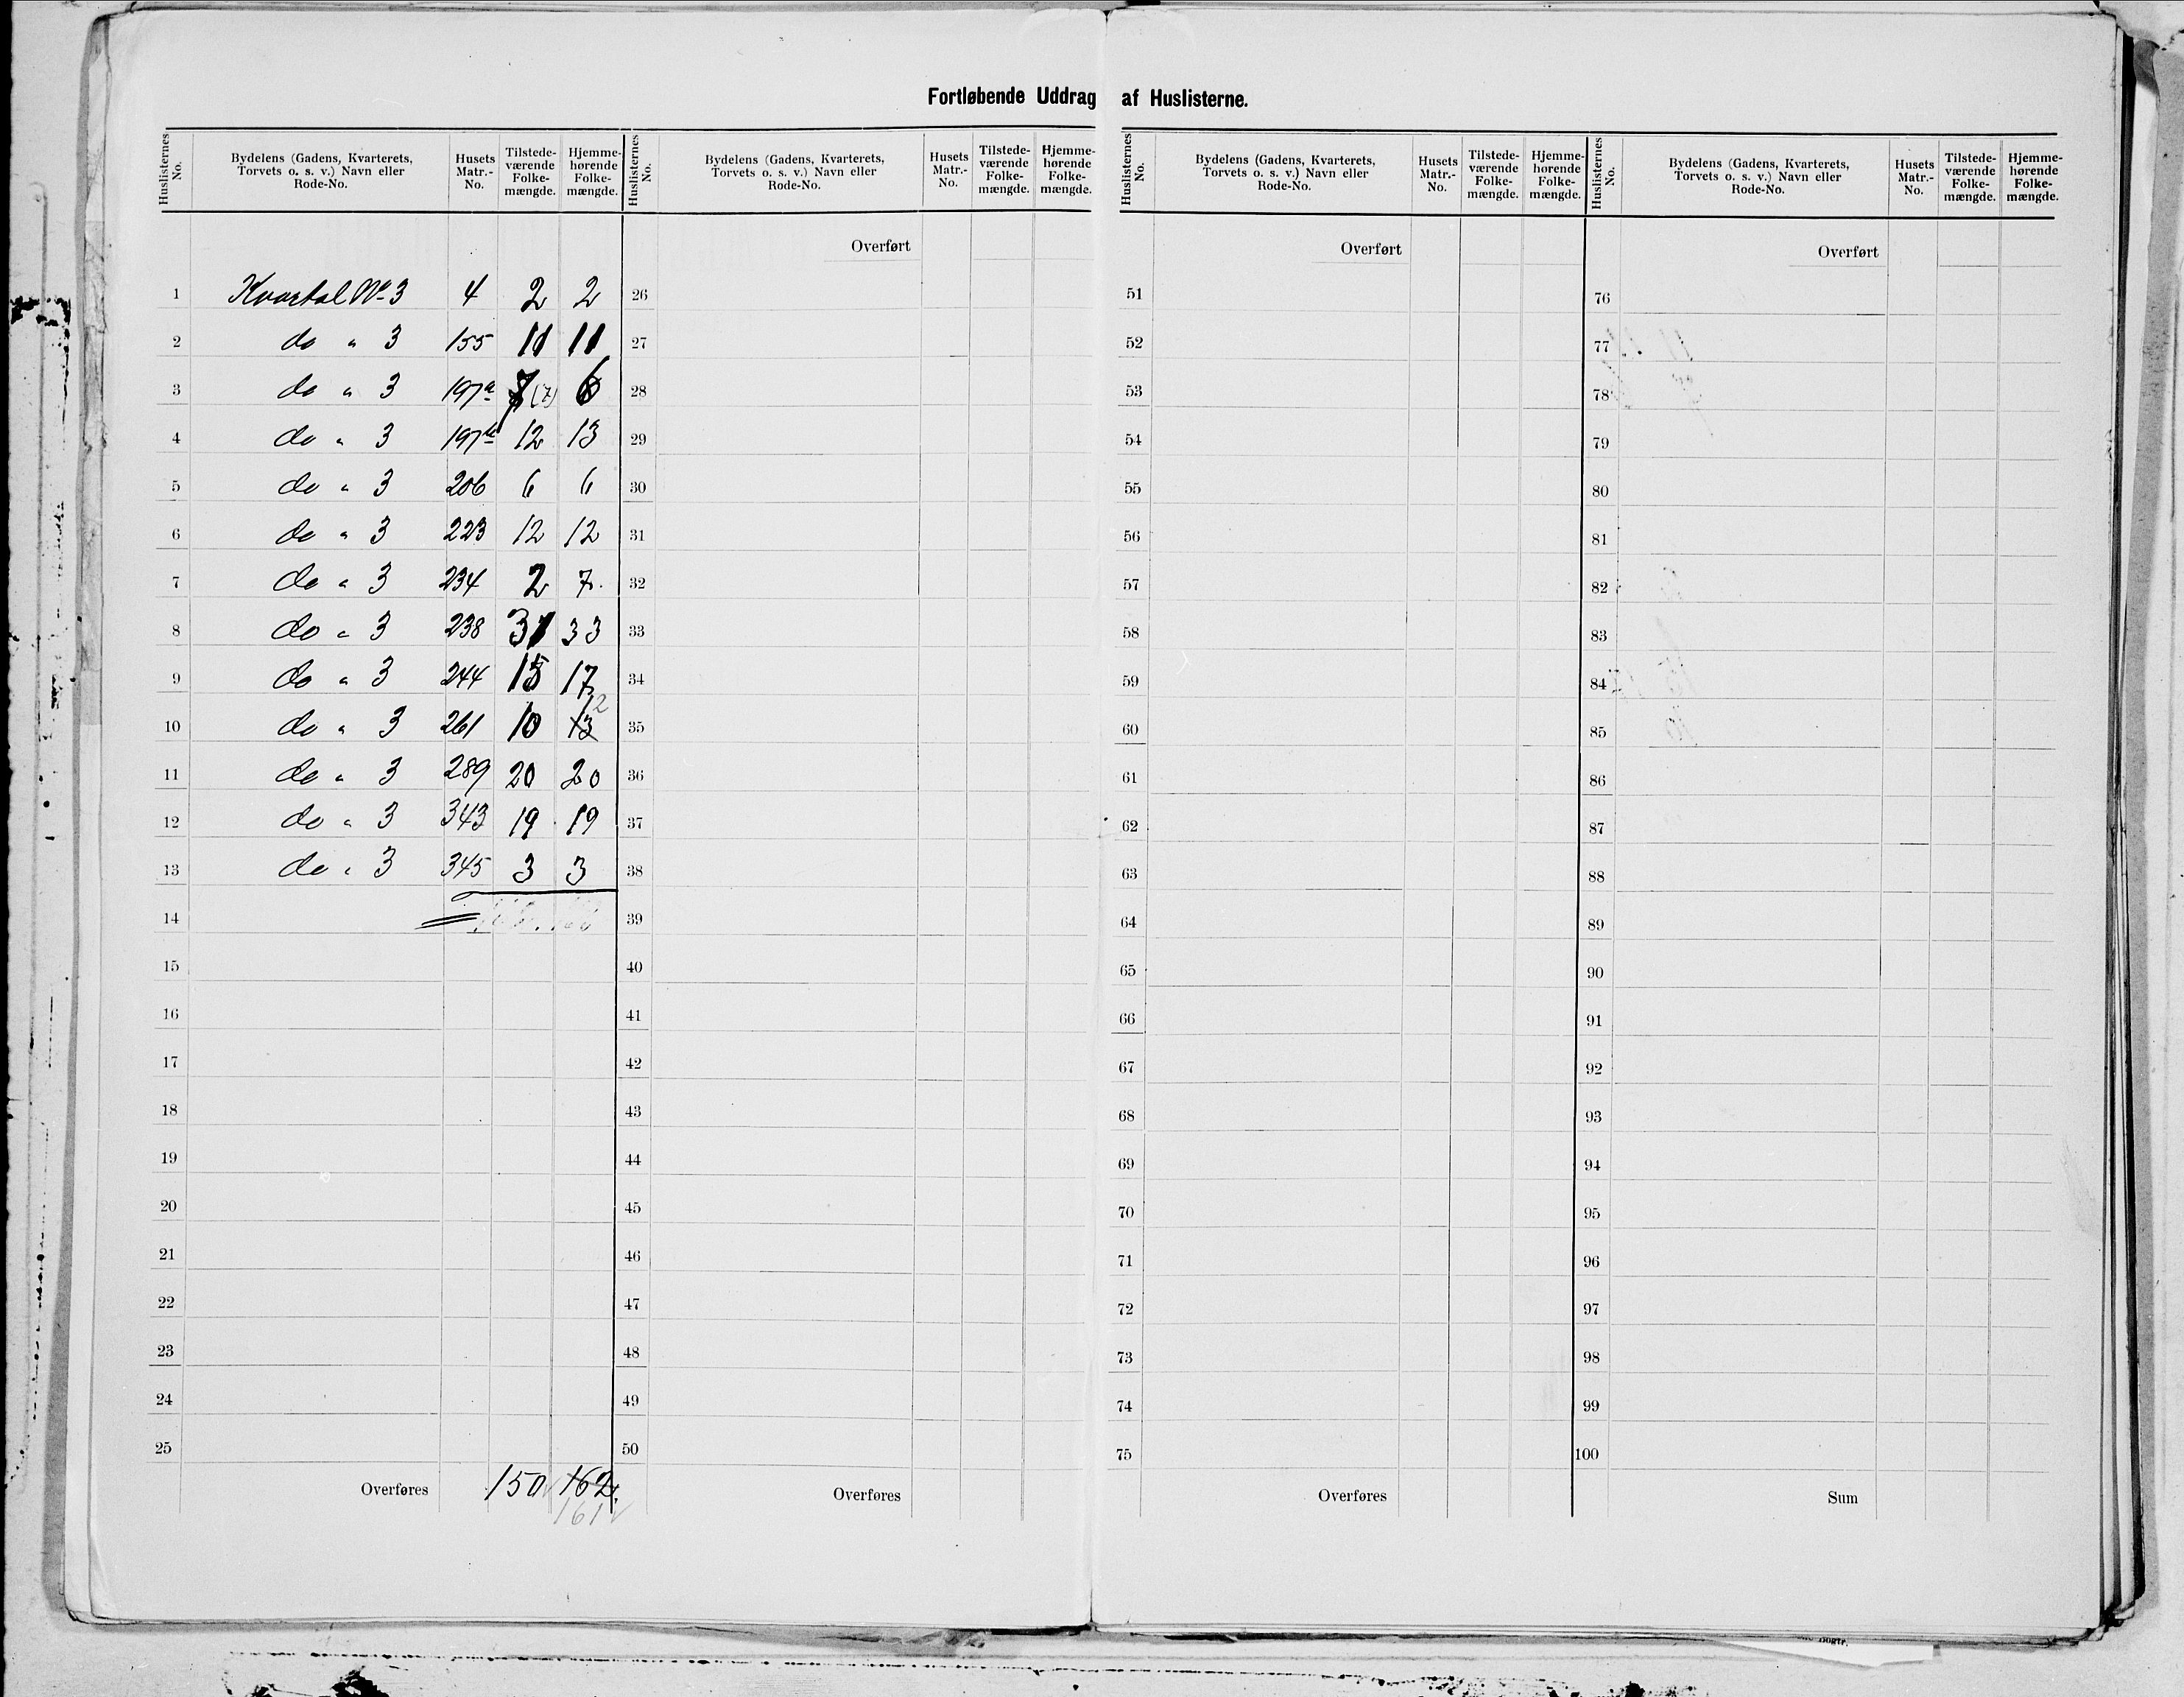 Fortløbende Uddrag af Huslisterne.
Huslisternes No. Bydelens (Gadens, Kvarterets, Torvets o. s. v.) Navn eller Rode-No. Husets Matr.-No. Tilstede-værende Folke-mængde. Hjemme-hørende Folke-mængde.
Huslisternes No. Bydelens (Gadens, Kvarterets, Torvets o. s. v.) Navn eller Rode-No. Husets Matr.-No. Tilstede-værende Folke-mængde. Hjemme-hørende Folke-mængde.
Huslisternes No. Bydelens (Gadens, Kvarterets, Torvets o. s. v.) Navn eller Rode-No. Husets Matr.-No. Tilstede-værende Folke-mængde. Hjemme-hørende Folke-mængde.
Huslisternes No. Bydelens (Gadens, Kvarterets, Torvets o. s. v.) Navn eller Rode-No. Husets Matr.-No. Tilstede-værende Folke-mængde. Hjemme-hørende Folke-mængde.
Overført Overført Overført
1 Kvartal No 3 4 2 2 26 51 76
2 do " 3 155 11 11 27 52 77
3 do " 3 197a 7 (7) 6 28 53 78
4 do " 3 197b 12 13 29 54 79
5 do " 3 206 6 6 30 55 80
6 do " 3 223 12 12 31 56 81
7 do " 3 234 2 7. 32 57 82
8 do " 3 238 31 33 33 58 83
9 do " 3 244 15 17 34 59 84
10 do " 3 261 10 13 12 35 60 85
11 do " 3 289 20 20 36 61 86
12 do " 3 343 19 19 37 62 87
13 do " 3 345 3 3 38 63 88
14 39 64 89
15 40 65 90
16 41 66 91
17 42 67 92
18 43 68 93
19 44 69 94
20 45 70 95
21 46 71 96
22 47 72 97
23 48 73 98
24 49 74 99
25 50 75 100
Overføres 150 162 Overføres Overføres Sum
161